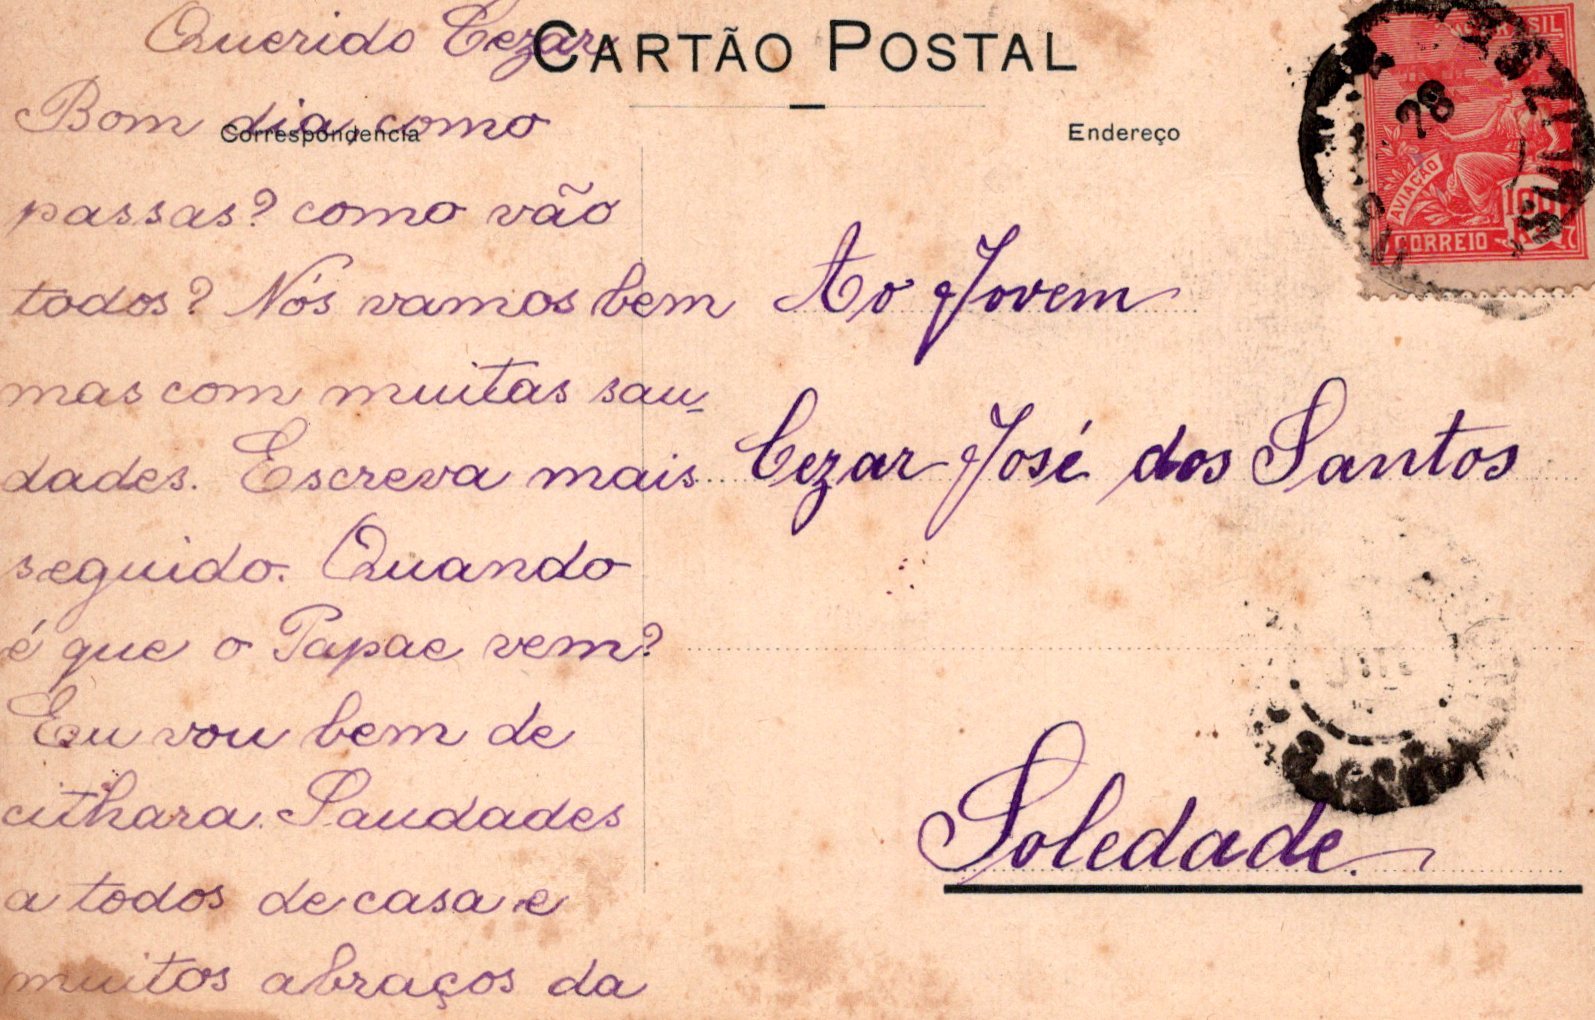 Querido Cezar,
Bom dia, como
passas? como vão
todos? Nós vamos bem
mas com muitas sau-
dades. Escreva mais
seguido. Quando
é que o Papae vem?
Eu vou bem de
cithara. Saudades
a todos de casa e
muitos abraços da
CARTÃO POSTAL
Correspondencia
Endereço
Ao Jovem
Cezar José dos Santos
Soledade.
BRASIL
AVIAÇÃO
CORREIO
28